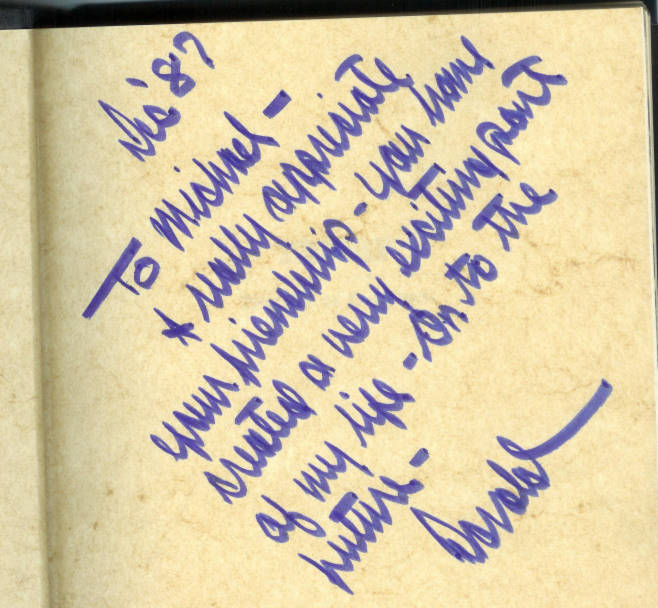 Dec '87
To Michael -
I really appreciate
your friendship - you have
created a very exciting part
of my life - on to the
future -
Donald